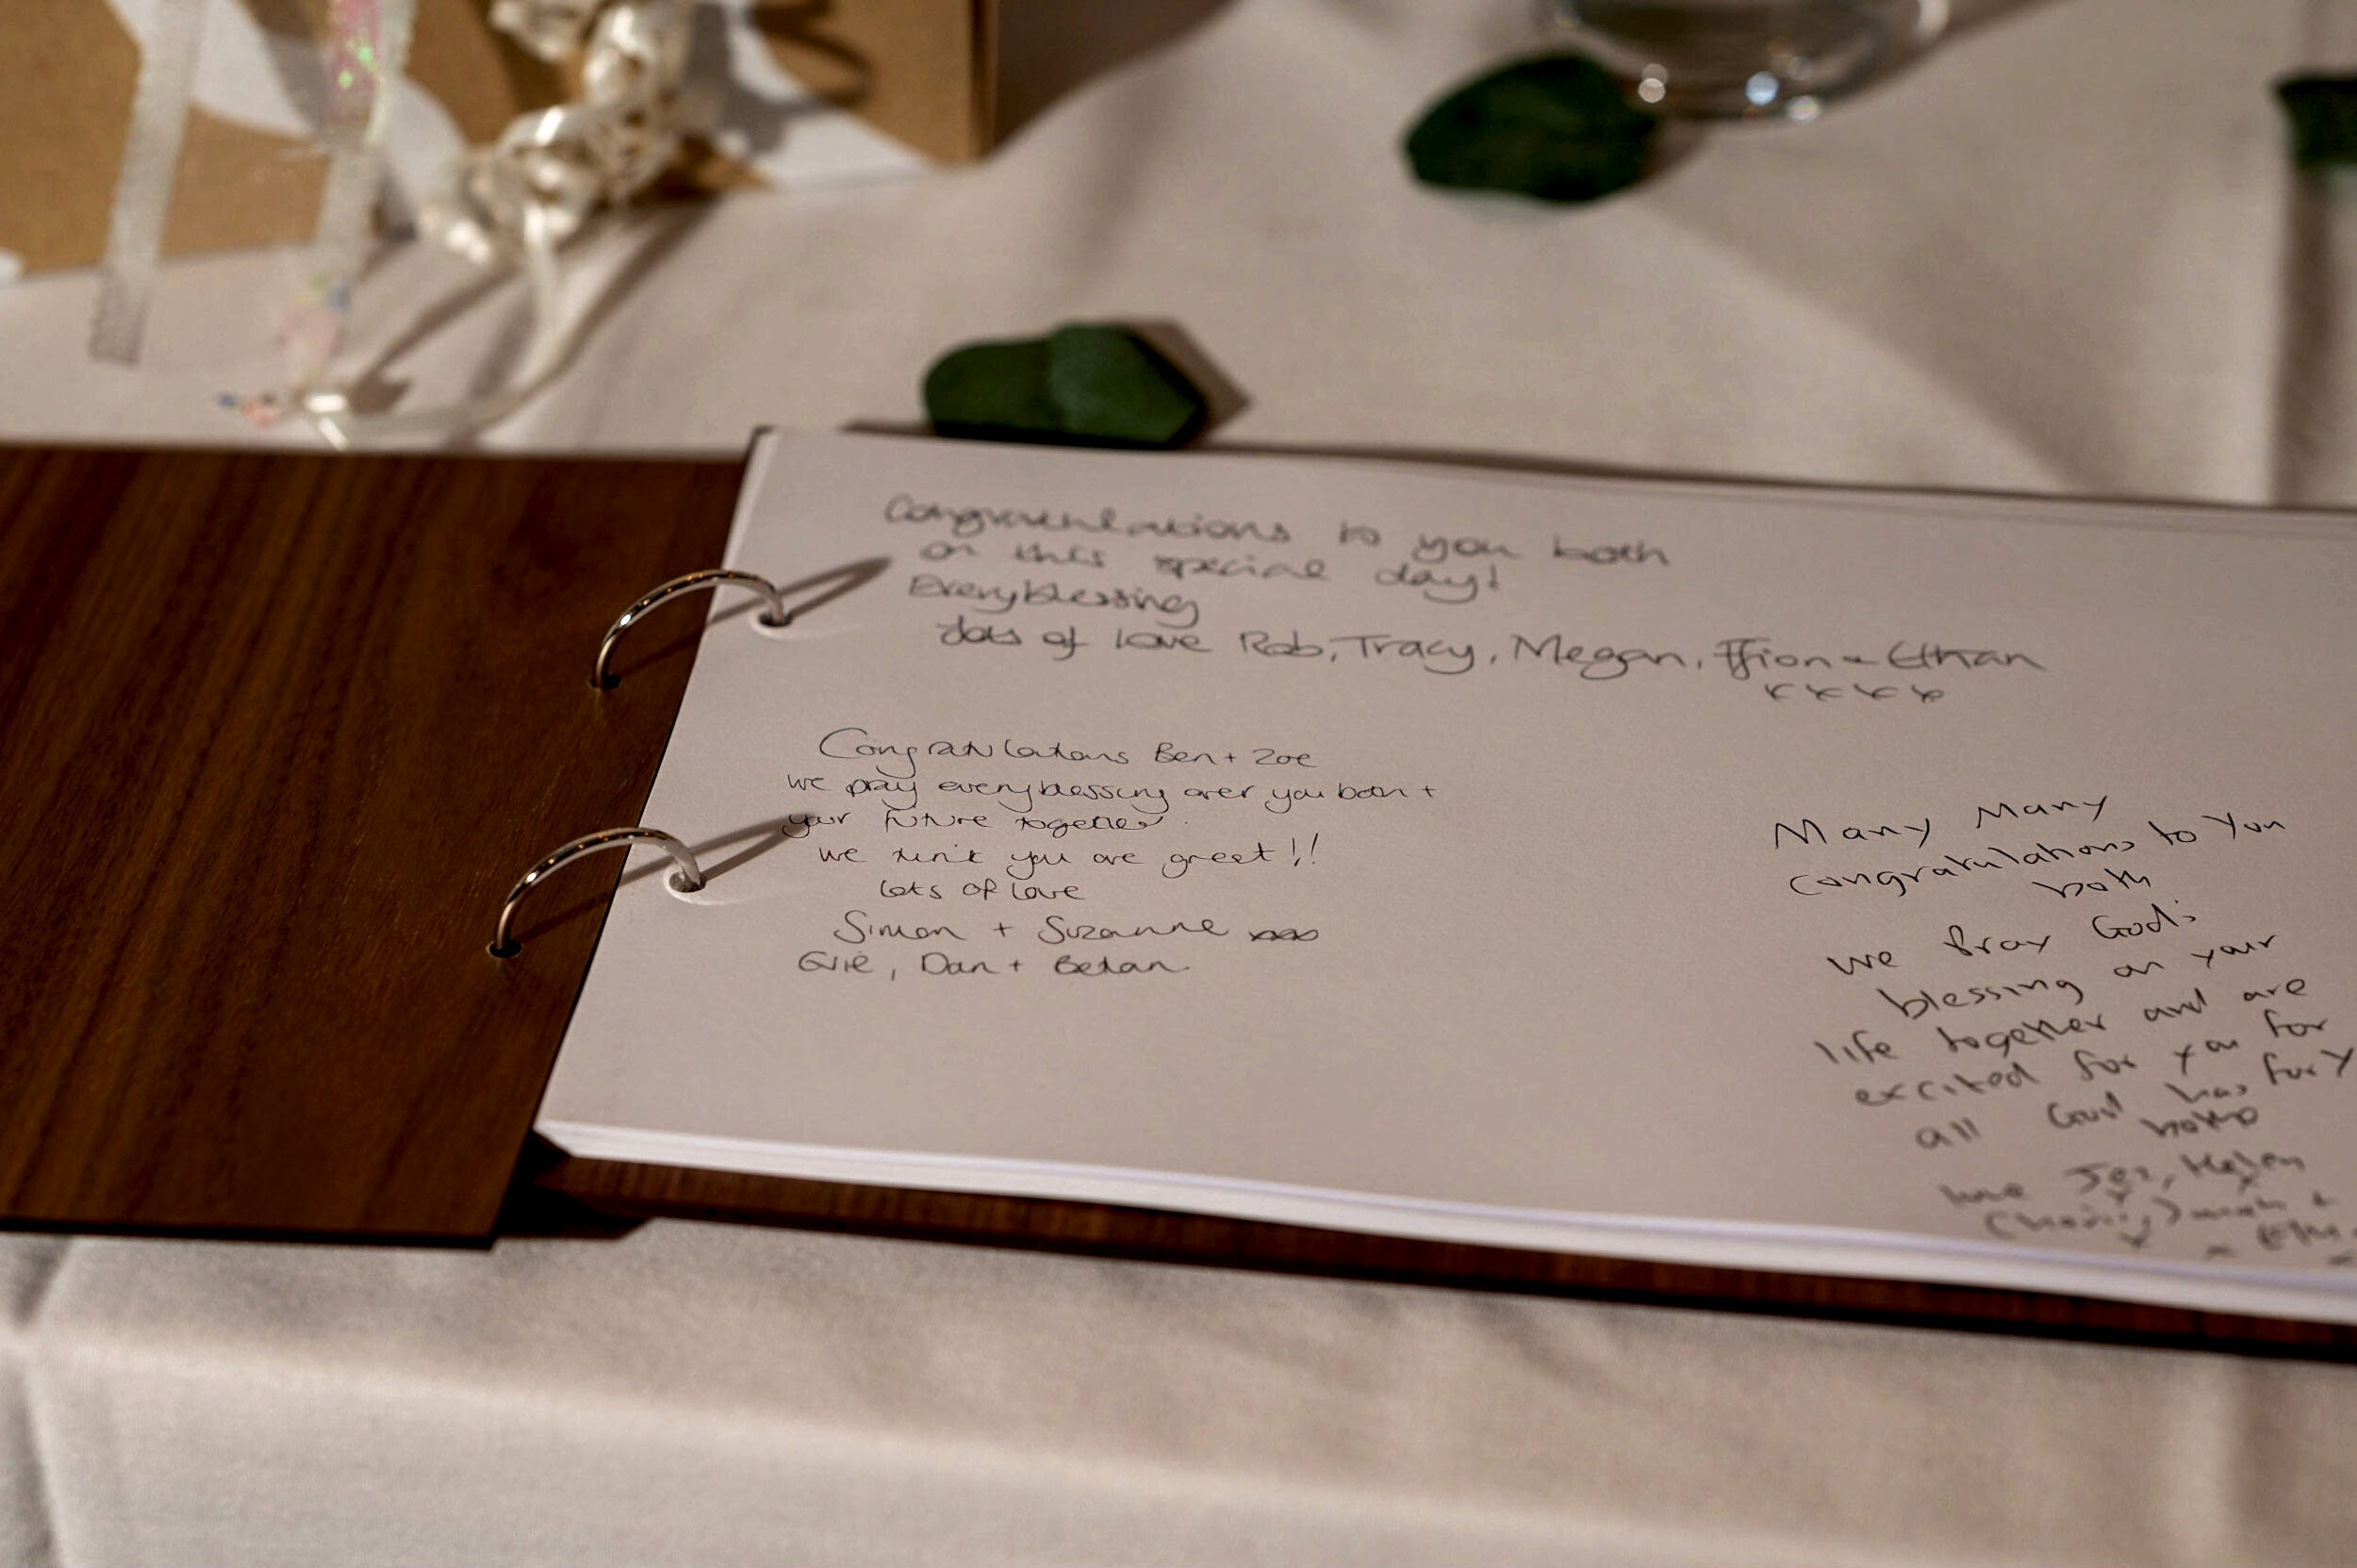 Congratulations to you both
on this special day!
Every blessing
Lots of love Rob, Tracy, Megan, Ffion + Ethan
x x x x
Congratulations Ben + Zoe
we pray every blessing over you both +
your future together.
we think you are great!!
Lots of love
Simon + Suzanne xxx
Evie, Dan + Bethan.
Many Many
congratulations to you
both
we Pray God's
blessing on your
life together and are
excited for you for
all God has for y
both
love Jez, Helen